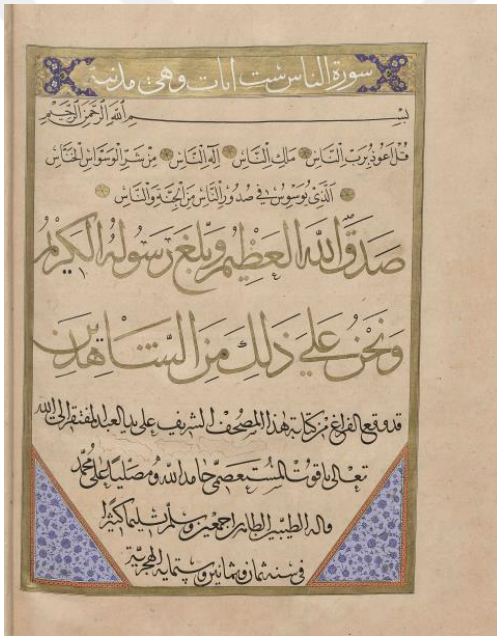 سورة الناس ست ايات وهي مدنية
بسم الله الرحمن الرحيم
قل اعوذ برب الناس ملك الناس اله الناس من شر الوسواس الخناس
الذي يوسوس في صدور الناس من الجنة والناس
صدق الله العظيم وبلغ رسوله الكريم
ونحن علي ذلك من الشاهدين
قد وقع الفراغ من كتابة هذا المصحف الشريف علي يد العبد المفتقر الي الله
تعالي ياقوت المستعصمي حامدا لله ومصليا علي محمد
واله الطيبين الطاهرين اجمعين وسلم تسليما كثيرا
في سنه ثمان وثمانين وستمايه الهجرية